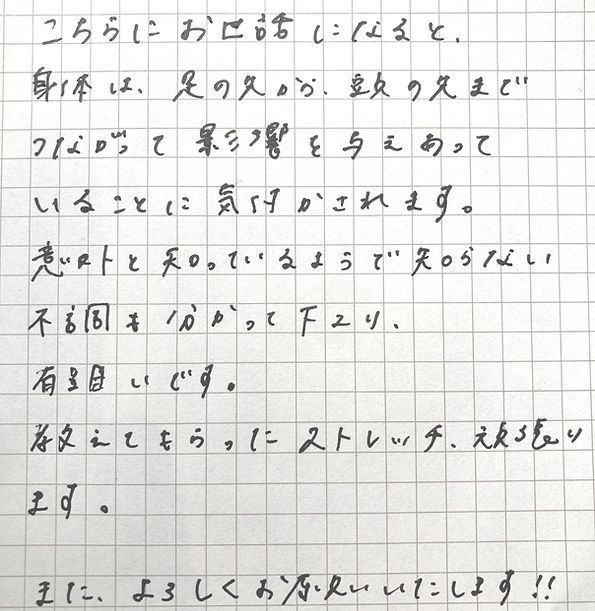 こちらにお世話になると、
身体は、足の先から、頭の先まで
つながって影響を与えあって
いることに気付かされます。
意外と知っているようで知らない
不調も分かって下さり、
有難いです。
教えてもらったストレッチ、頑張り
ます。
また、よろしくお願いいたします!!